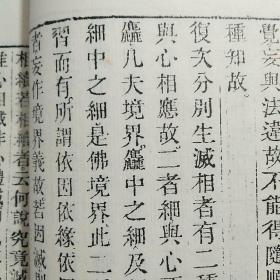 覺妄與法違故不能得隨
種知故
復次分別生滅相者有二種
與心相應故二者細與心
麤凡夫境界麤中之細及
細中之細是佛境界此二
習而有所謂依因依緣依
者妄作境界義故若因滅則
相續若相續者云何說究竟滅
唯心相滅非心體滅